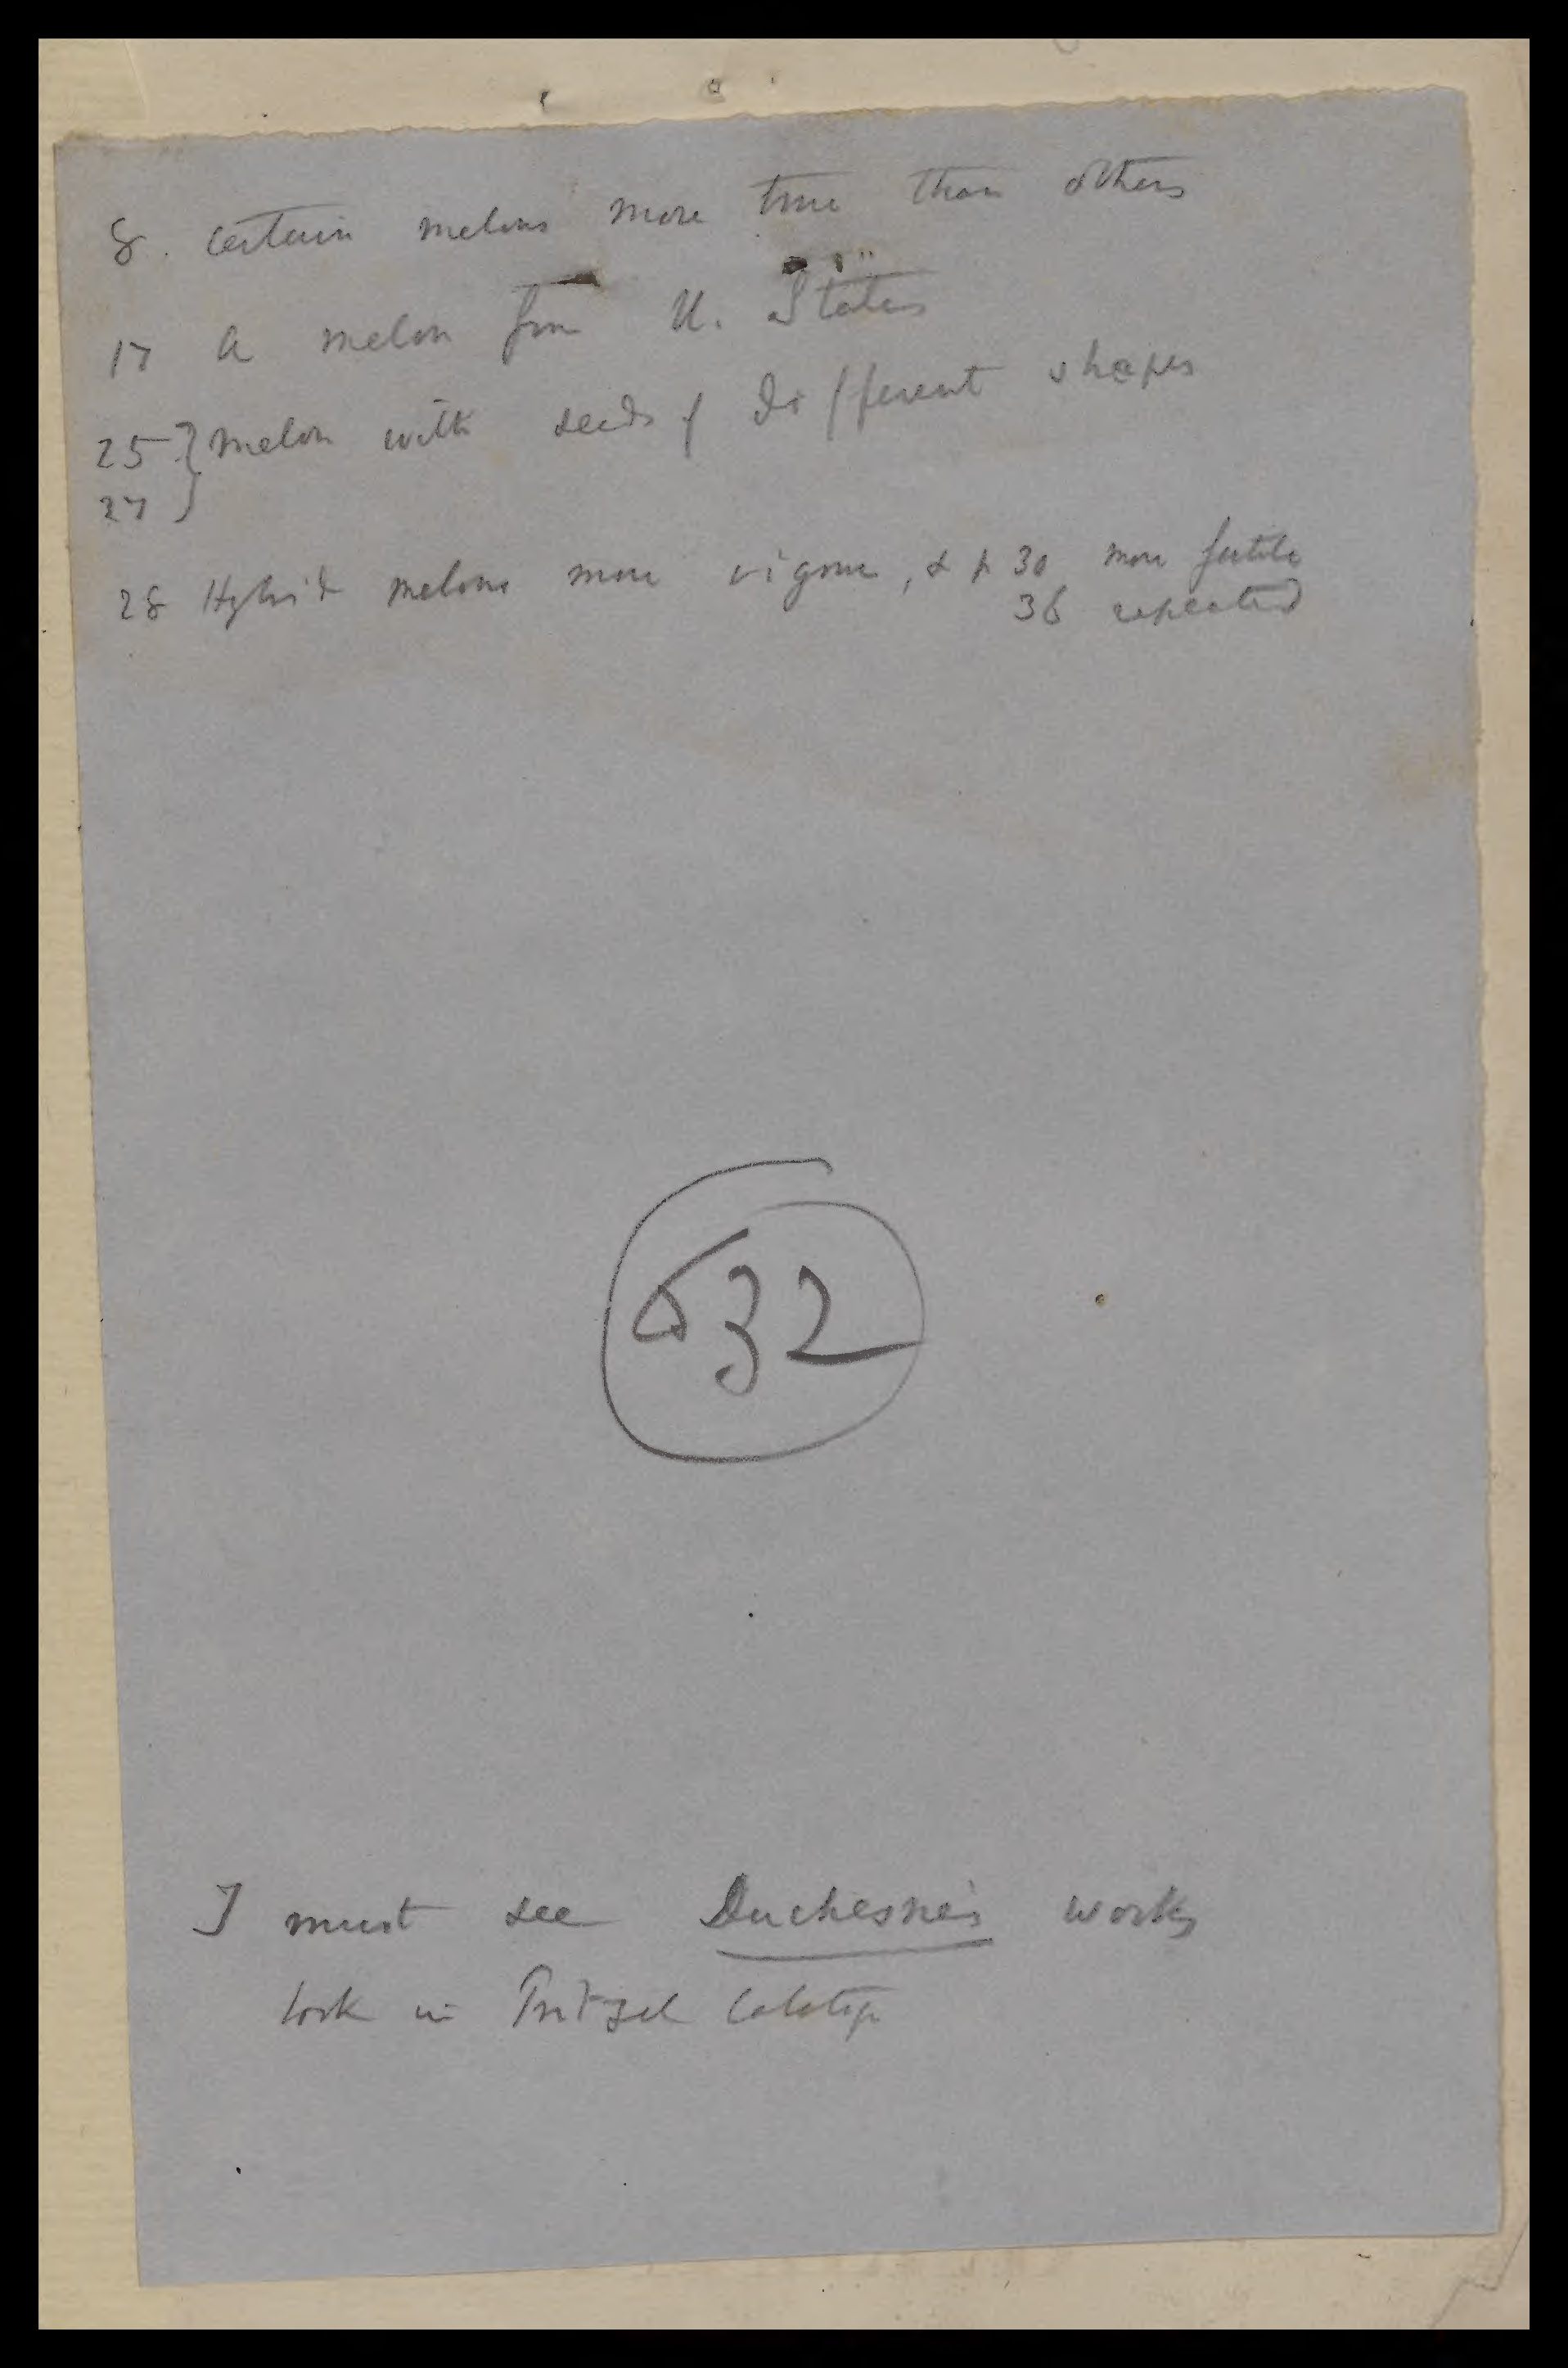 8. certain melons more true than others
17 A melon from U. States
25 } melon with seeds of different shapes
27 }
28 Hybrid melons more vigour, & p 30 more fertile
36 repeated
532
I must see Duchesne's works
look in Pritzel